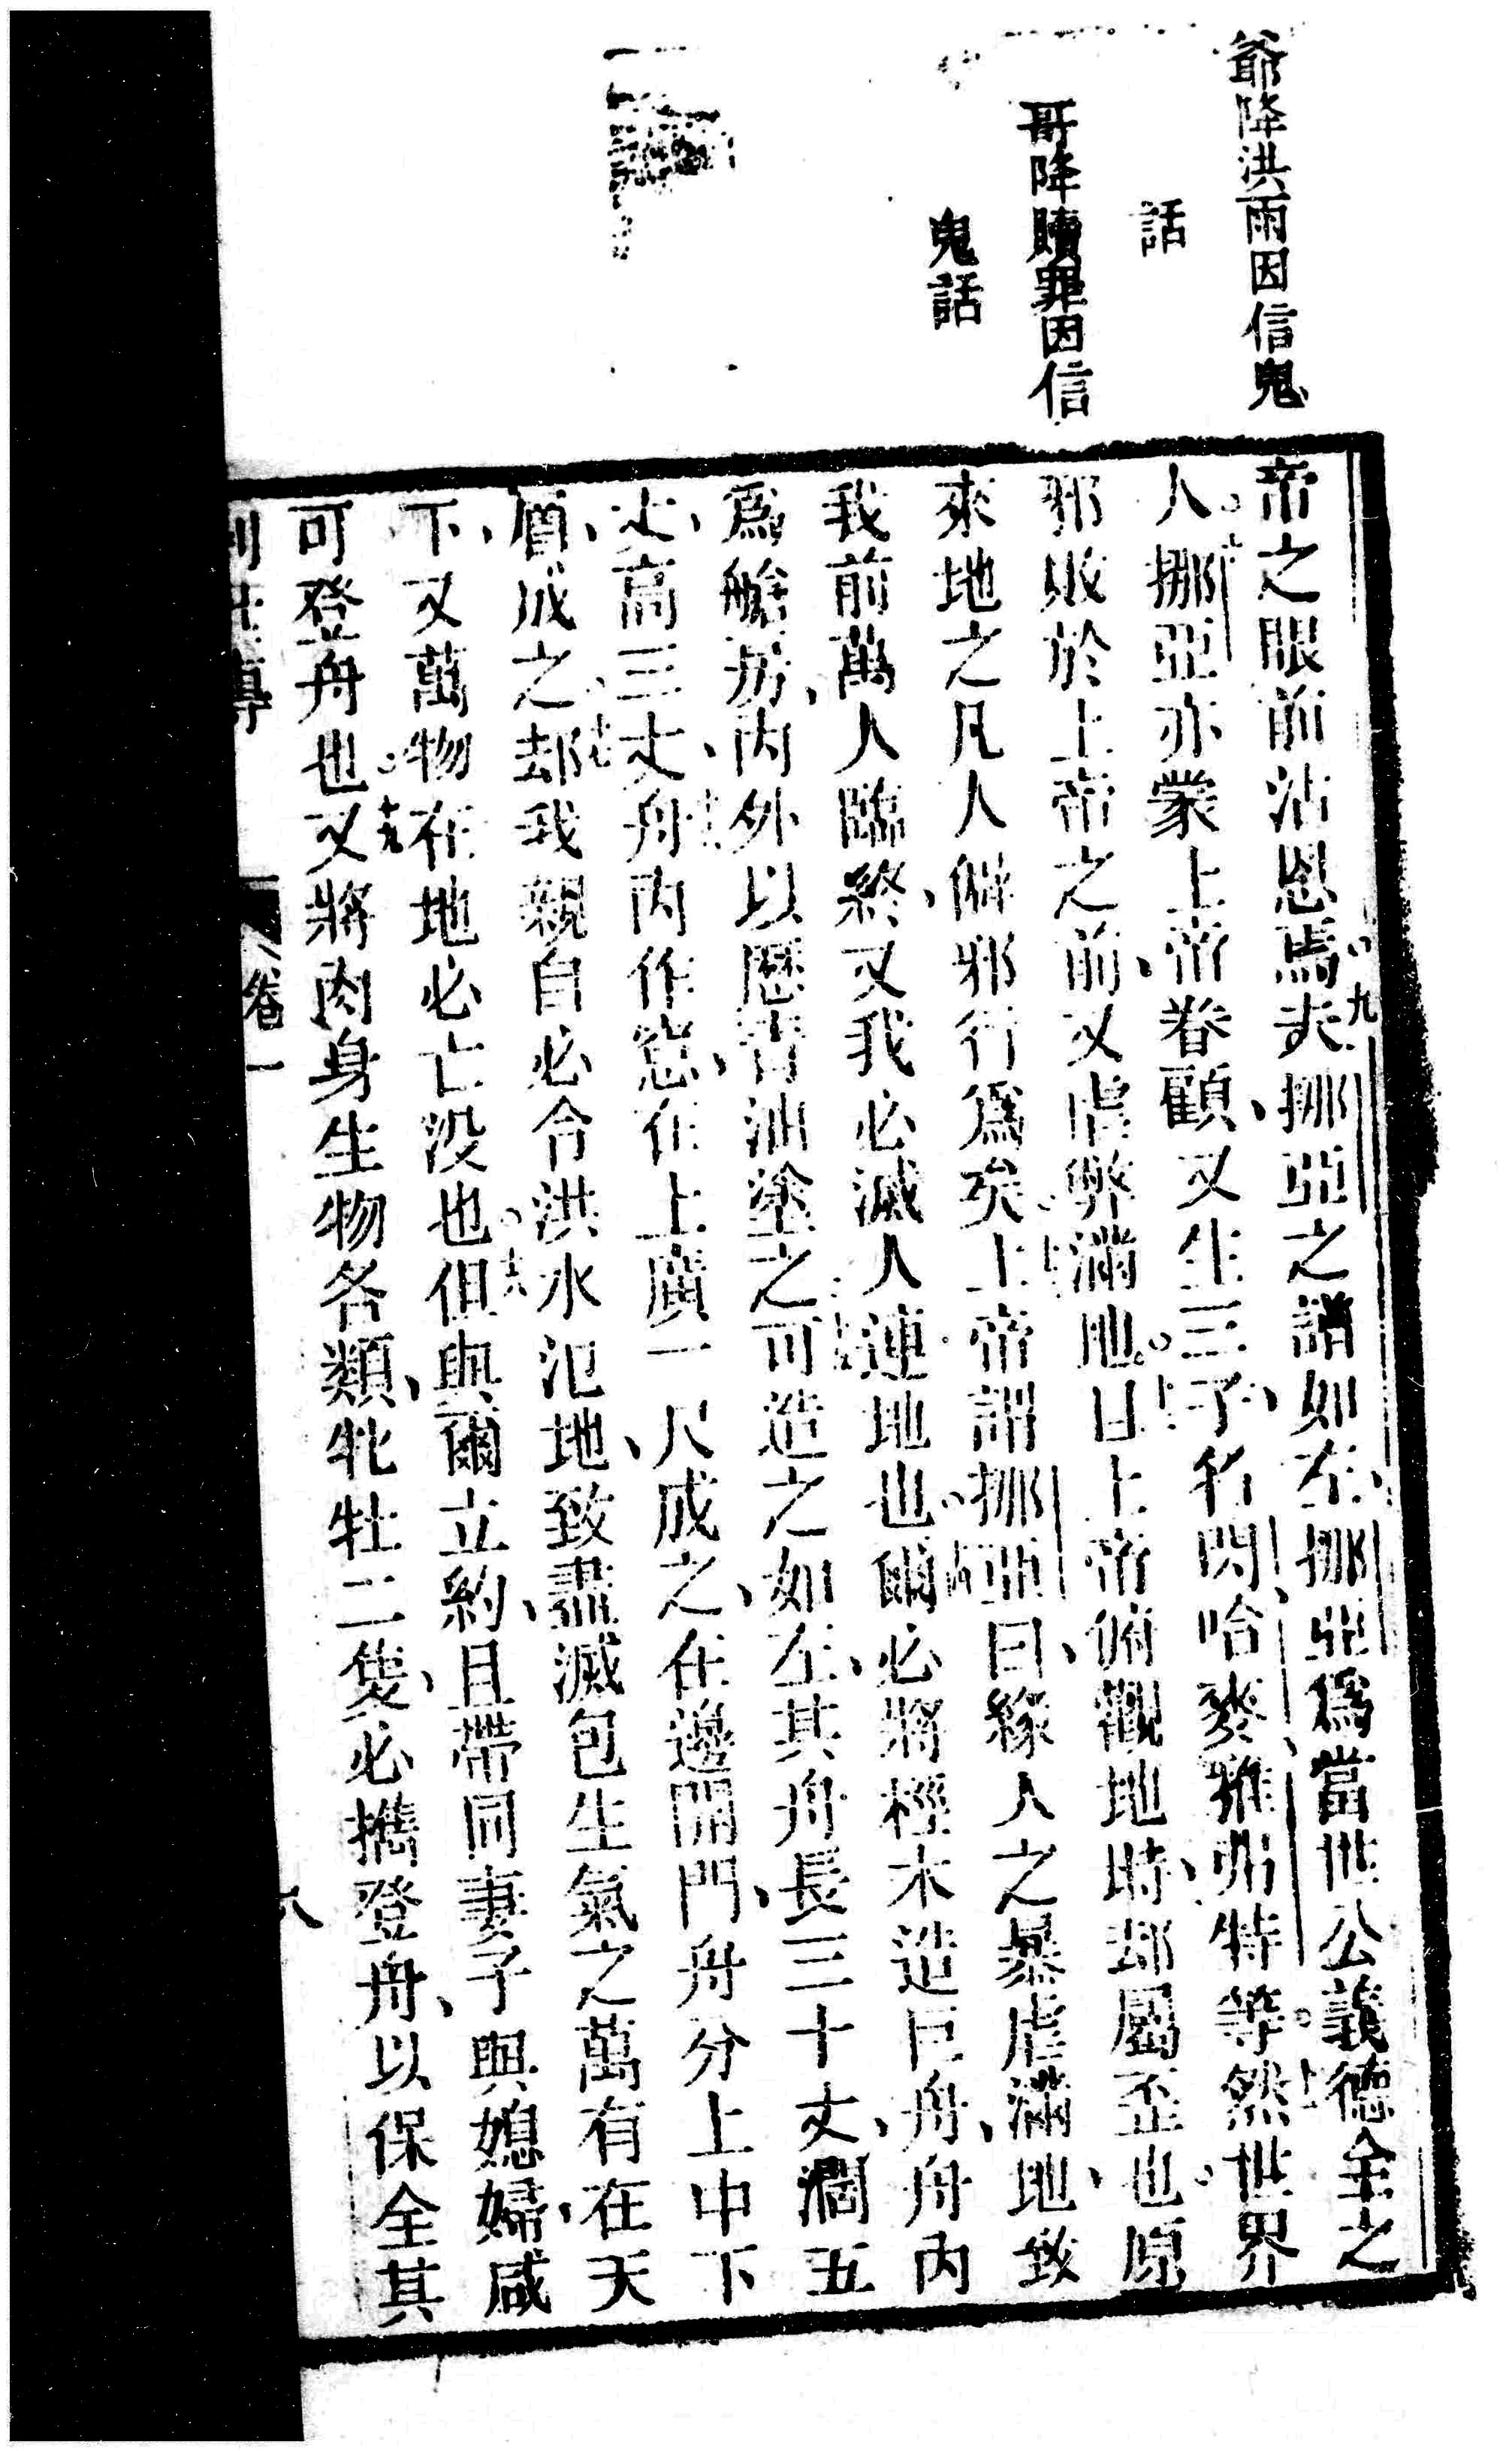 爺降洪雨因信鬼
話
哥降贖罪因信
鬼話
帝之眼前沾恩焉九夫挪亞之譜如左、挪亞爲當世公義德全之
人。挪亞亦蒙上帝眷顧、又生三子、名閃、哈麥、雅弗特等。然世界
邪敗於上帝之前、又虐弊滿地。上帝俯觀地時、却屬歪也。原
來地之凡人僻邪行爲矣。上帝謂挪亞曰、緣人之暴虐滿地、致
我前萬人臨終、又我必滅人連地也。爾必將桱木造巨舟、舟內
爲艙房、內外以瀝青油塗之可造之如左、其舟長三十丈、濶五
丈、高三丈、舟內作窓、在上廣一尺成之、在邊開門、舟分上中下
層成之、却我親自必令洪水氾地、致盡滅包生氣之萬有在天
下、又萬物在地必亡没也。但與爾立約、且帶同妻子與媳婦、咸
可登舟也。又將肉身生物各類、牝牡二隻、必攜登舟、以保全其
卷一
八